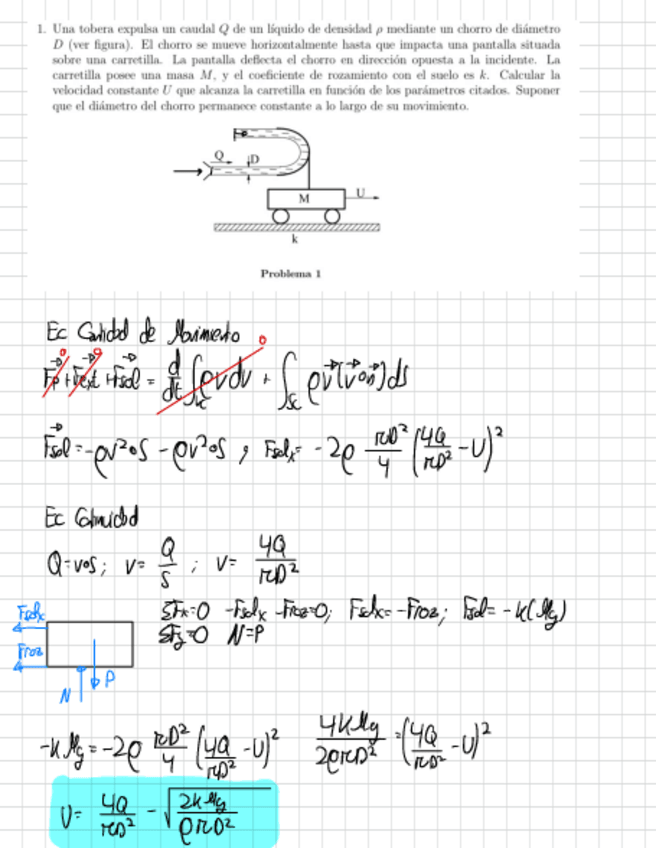 1. Una tobera expulsa un caudal Q de un líquido de densidad ρ mediante un chorro de diámetro
D (ver figura). El chorro se mueve horizontalmente hasta que impacta una pantalla situada
sobre una carretilla. La pantalla deflecta el chorro en dirección opuesta a la incidente. La
carretilla posee una masa M, y el coeficiente de rozamiento con el suelo es k. Calcular la
velocidad constante U que alcanza la carretilla en función de los parámetros citados. Suponer
que el diámetro del chorro permanece constante a lo largo de su movimiento.
Q D
M U
k
Problema 1
Ec Cantidad de Movimiento
Fp + Fext + Fsol = d/dt ∫vc ρv dv + ∫sc ρv(v∘n)ds
0 0 0
Fsol = -ρv²∘S - ρv²∘S ; Fsolx = -2ρ πD²/4 (4Q/πD² - U)²
Ec Continuidad
Q = v∘S; v = Q/S ; v = 4Q/πD²
Fsolx
Froz
N P
ΣFx=0 -Fsolx -Froz=0; Fsolx=-Froz; Fsol= -k(Mg)
ΣFy=0 N=P
-kMg = -2ρ πD²/4 (4Q/πD² - U)² 4kMg/2ρπD² = (4Q/πD² - U)²
U = 4Q/πD² - √(2kMg/ρπD²)